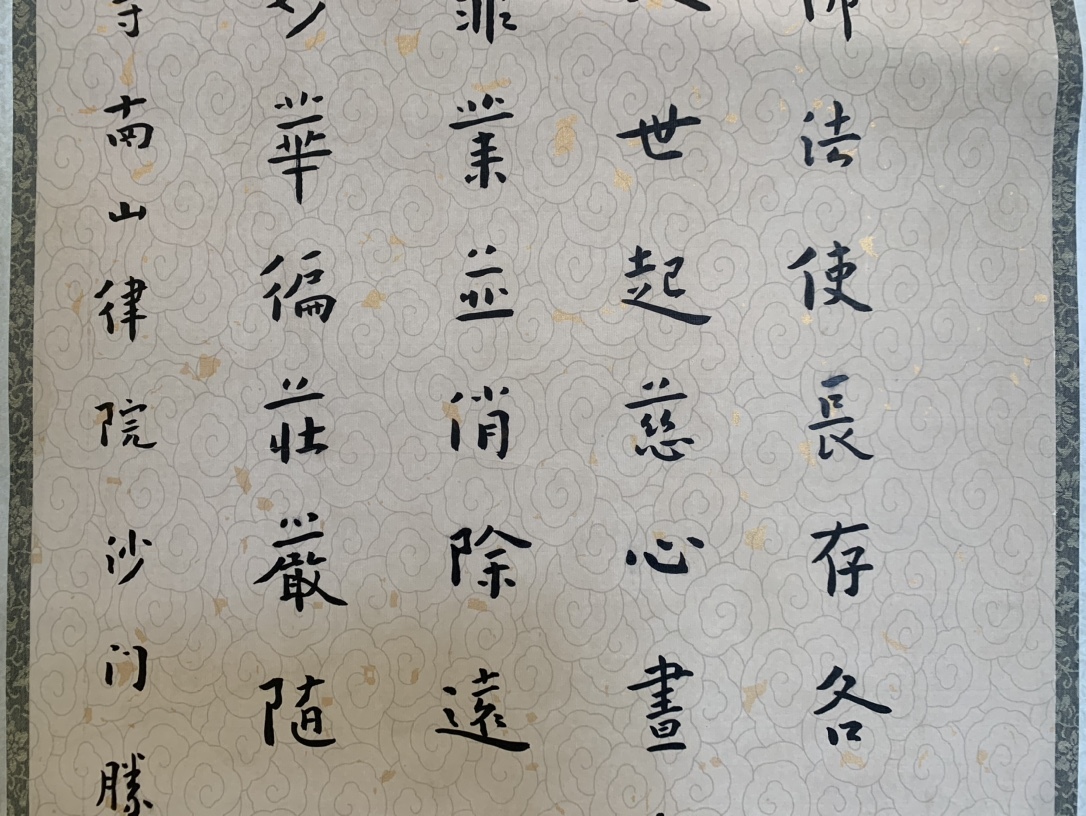 佛法使長存各
世起慈心晝
罪業並消除遠
妙華徧莊嚴隨
寺南山律院沙门勝